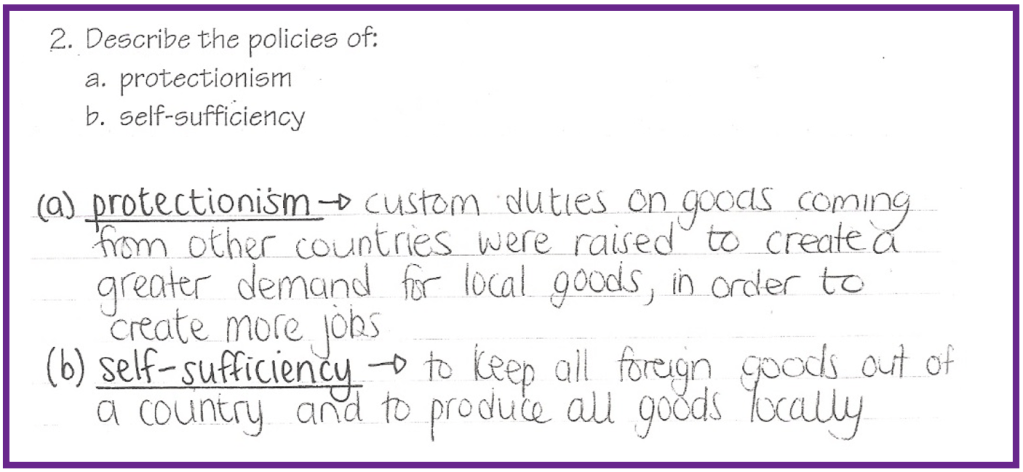 2. Describe the policies of:
a. protectionism
b. self-sufficiency
(a) protectionism → custom duties on goods coming
from other countries were raised to create a
greater demand for local goods, in order to
create more jobs
(b) self-sufficiency → to keep all foreign goods out of
a country and to produce all goods locally